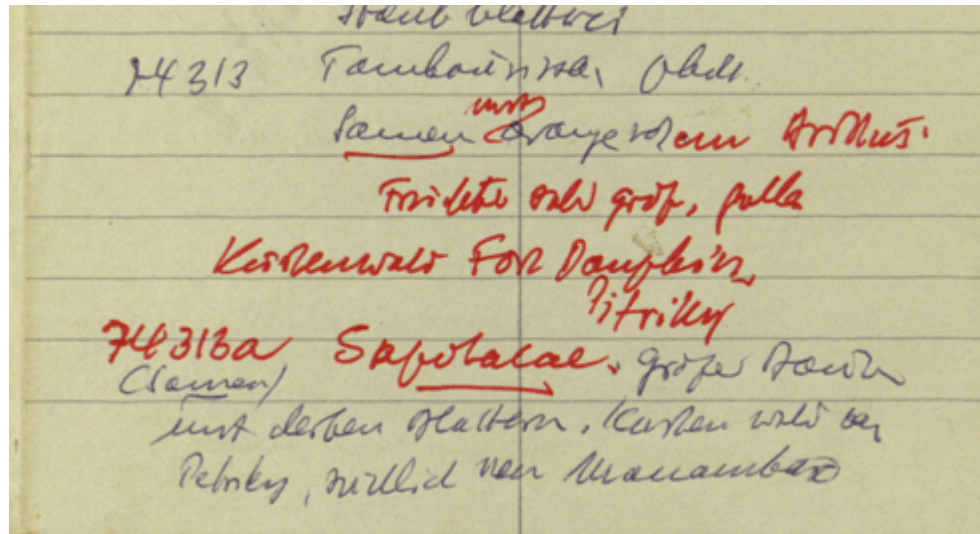 74313 Tambourissa,
Samen mit orangerotem Arillus.
Früchte sehr groß, gelb
Küstenwald Fort Dauphin,
Pitriky
74313a Sapotacae. großer Strauch
(Samen)
mit derben Blättern. Küstenwald bei
Petriky, südlich von Manambaro